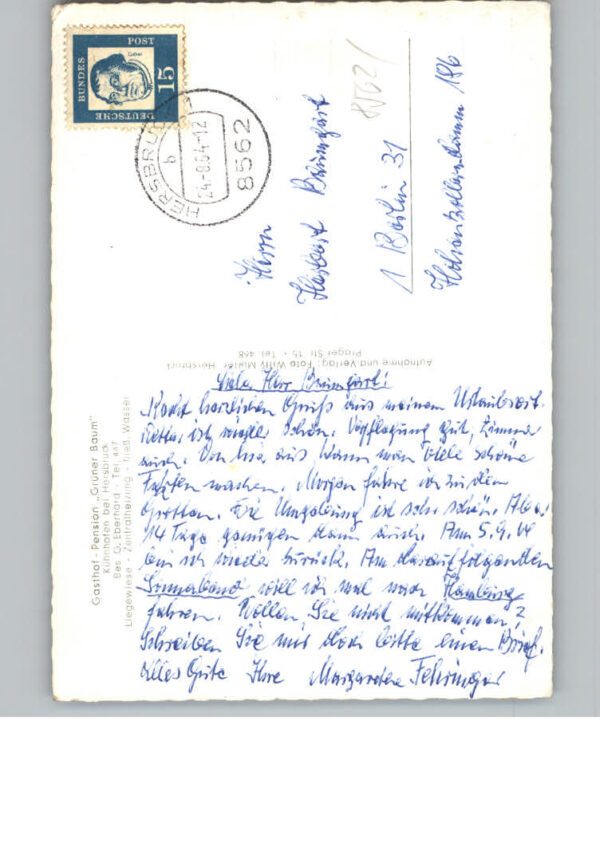 DEUTSCHE
BUNDES
POST
15
HERSBRUCK
b
24-8.64-12
8562
8562/
Herrn
Herbert Baumgart
1 Berlin 31
Hohenzollerndamm 196
Aufnahme und Verlag: Foto Willy Müller, Hersbruck
Prager Str. 15 · Tel. 468
Gasthof - Pension „Grüner Baum"
Kühnhofen bei Hersbruck
Bes. G. Eberhard - Tel. 447
Liegewiese - Zentralheizung - fließ. Wasser
Lieber Herr Baumgart!
Recht herzlichen Gruß aus meinem Urlaubsort.
ist wieder schön. Verpflegung gut, Zimmer
auch. Von hier aus kann man viele schöne
Fahrten machen. Morgen fahre ich zu den
Grotten. Die Umgebung ist sehr schön. Aber
14 Tage genügen dann auch. Am 5.9.
bin ich wieder zurück. Am darauffolgenden
Sonnabend will ich mal nach Hamburg
fahren. Wollen Sie nicht mitkommen?
Schreiben Sie mir doch bitte einen Brief.
Alles Gute Ihre Margarete Fehringer